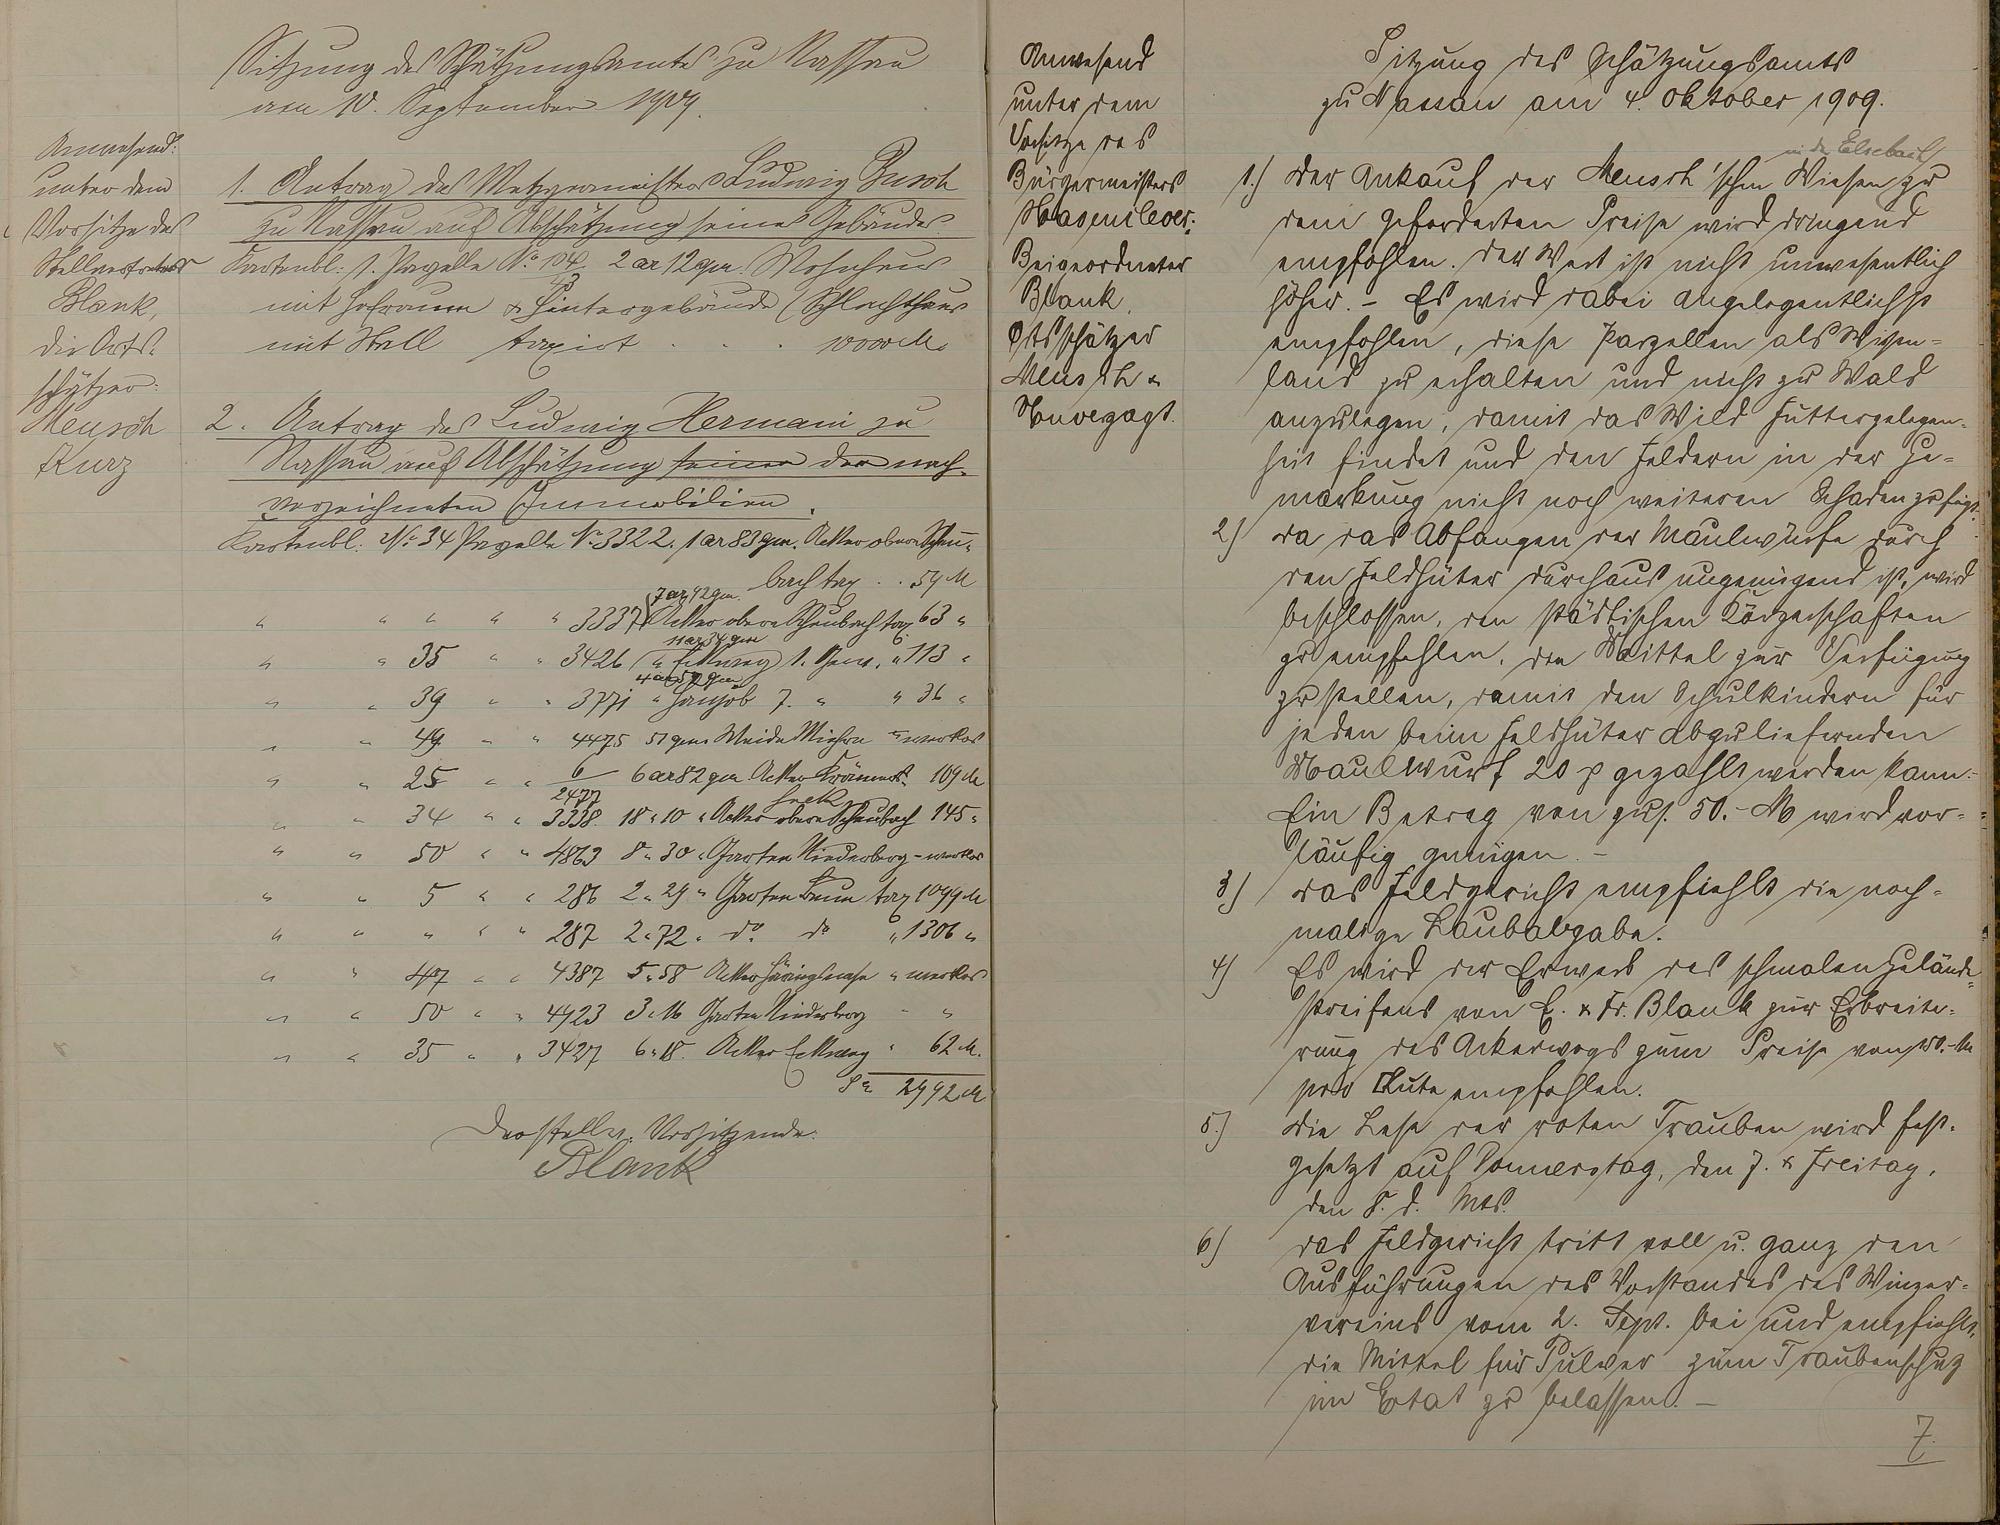 Sitzung des Schätzungsamtes zu Nassau
am 10. September 1909.
Anwesend:
unter dem
Vorsitze des
Stellvertreters
Blank,
die Orts-
schätzer:
Meusch
Kurz
1. Antrag des Metzgermeisters Ludwig Busch
zu Nassau auf Abschätzung seines Gebäudes
Kartenbl: 1. Parzelle No 104 2 ar 12 qm. Wohnhaus
mit Hofraum & Hintergebäude (Schlachthaus
mit Stall taxiert . . .
2. Antrag des Ludwig Hermani zu
Nassau auf Abschätzung seiner der nach-
verzeichneten Immobilien.
Kartenbl: No 34 Parzelle No 3322. 1 ar 83 qm. Acker obere Scheu-
bach tax . . 54 M
" " " " " 3337 7 ar 92 qm. Acker obere Scheubach tax 63 "
" " 35 " " 3426 11 ar 34 qm " Eckweg 1. Gew. " 113 "
" " 39 " " 3771 4 ar 57 qm " 7. " " 36 "
" " 49 " " 4475 51 qm. Weide " wertlos
" " 25 " " 6/2477 6 ar 82 qm Acker 109 M
" " 34 " " 3338. 18 " 10 " Acker obere Scheubach 145 "
" " 50 " " 4863 8 " 30 " Garten Niederberg - wertlos
" " 5 " " 286 2 " 29 " Garten tax 1099 M
" " " " " 287 2 " 72 " do do " 1306 "
" " 47 " " 4387 5 " 58 Acker " wertlos
" " 50 " " 4923 3 " 16 Garten Niederberg " "
" " 35 " " 3427 6 " 18. Acker Eckweg " 62 M.
Sa 2992 M
Der stellv. Vorsitzende:
Blank
Anwesend
unter dem
Vorsitze des
Bürgermeisters
Hasenclever:
Beigeordneter
Blank.
Ortsschätzer
Meusch &
Unverzagt.
Sitzung des Schätzungsamts
zu Nassau am 4. Oktober 1909.
in der Elsebach
1.) Der Ankauf der Meusch'schen Wiesen zu
dem geforderten Preise wird dringend
empfohlen. Der Wert ist nicht unwesentlich
höher. - Es wird dabei angelegentlichst
empfohlen, diese Parzellen als Wiesen-
land zu erhalten und nicht zu Wald
anzulegen, damit das Wild Futtergelegen-
heit findet und den Feldern in der Ge-
markung nicht noch weiteren Schaden zufügt.
2) Da das Abfangen der Maulwürfe durch
den Feldhüter durchaus ungenügend ist, wird
beschlossen, den städtischen Körperschaften
zu empfehlen, die Mittel zur Verfügung
zu stellen, damit den Schulkindern für
jeden beim Feldhüter abzuliefernden
Maulwurf 20 P gezahlt werden kann. -
Ein Betrag von zus. 50.- M wird vor-
läufig genügen. -
3) Das Feldgericht empfiehlt die noch-
malige Laubabgabe.
4) Es wird der Erwerb des schmalen Gelände-
streifens von E. & Fr. Blank zur Erbreite-
rung des Ackerwegs zum Preise von 150.- M
pro □Rute empfohlen.
5.) Die Lese der roten Trauben wird fest-
gesetzt auf Donnerstag, den 7. & Freitag,
den 8. d. Mts.
6) Das Feldgericht tritt voll u. ganz den
Ausführungen des Vorstandes des Winzer-
vereins vom 2. Sept. bei und empfiehlt,
die Mittel für Pulver zum Traubenschutz
im Etat zu belassen. -
7.